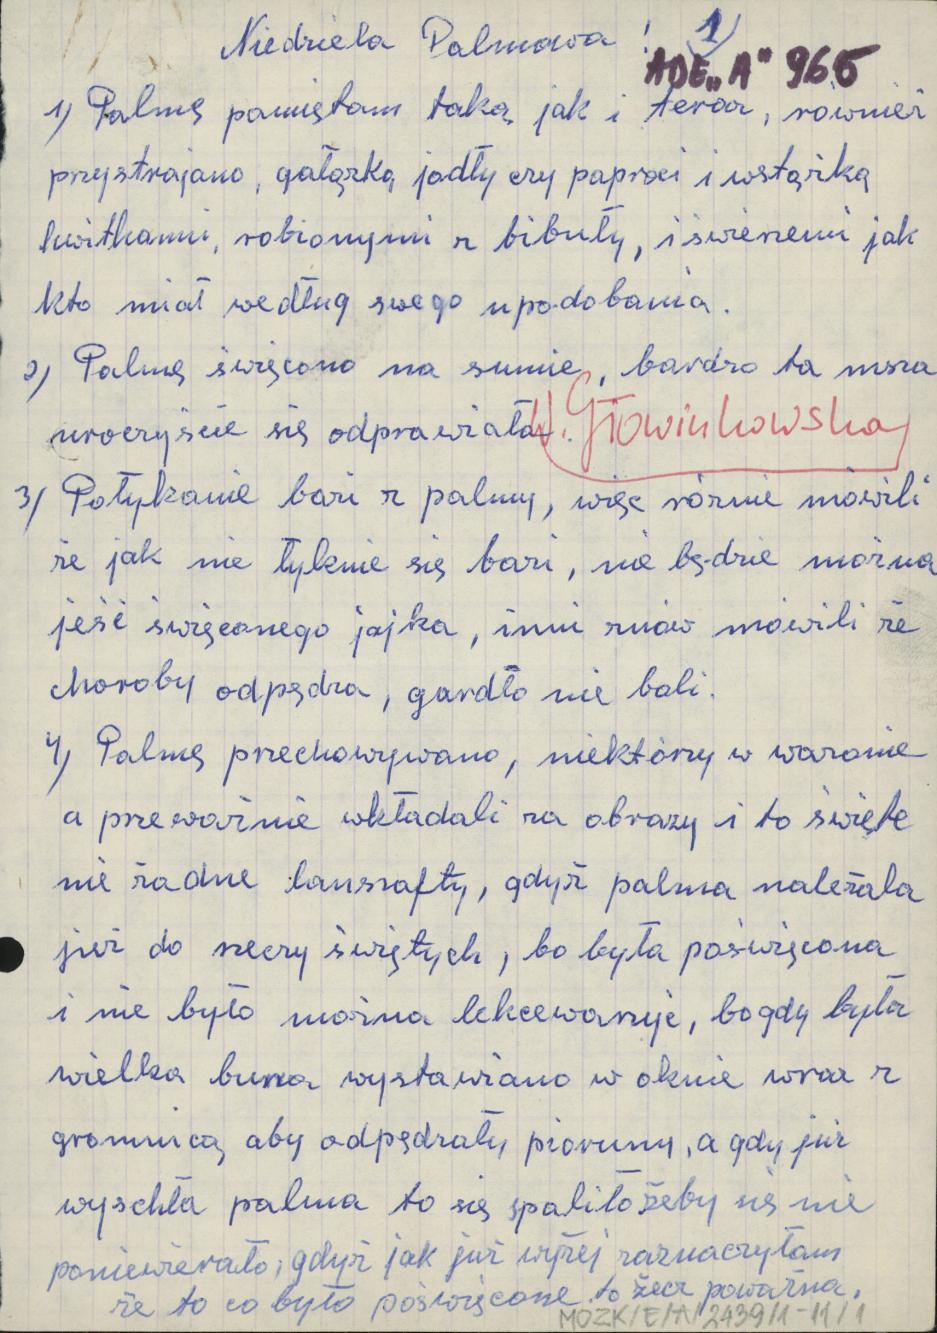 Niedziela Palmowa! 1)
ADE „A" 965
1) Palmę pamiętam taką jak i teraz, również
przystrajano, gałązką jodły czy paproci i wstążką
kwitkami, robionymi z bibuły, i świeżemi jak
kto miał według swego upodobania.
2) Palmę święcono na sumie, bardzo ta msza
uroczyście się odprawiała.
W. Głowinkowska
3) Połykanie bazi z palmy, więc różnie mówili
że jak nie łyknie się bazi, nie będzie można
jeść święconego jajka, inni znów mówili że
choroby odpędza, gardło nie boli.
4) Palmę przechowywano, niektórzy w wazonie
a przeważnie wkładali za obrazy i to święte
nie żadne lanszafty, gdyż palma należała
już do rzeczy świętych, bo była poświęcona
i nie było można lekceważyć, bo gdy była
wielka burza wystawiano w oknie wraz z
gromnicą aby odpędzały pioruny, a gdy już
wyschła palma to się spaliło żeby się nie
poniewierało, gdyż jak już wyżej zaznaczyłam
że to co było poświęcone to żecz poważna.
MOZK/E/A/2439/1-11/1